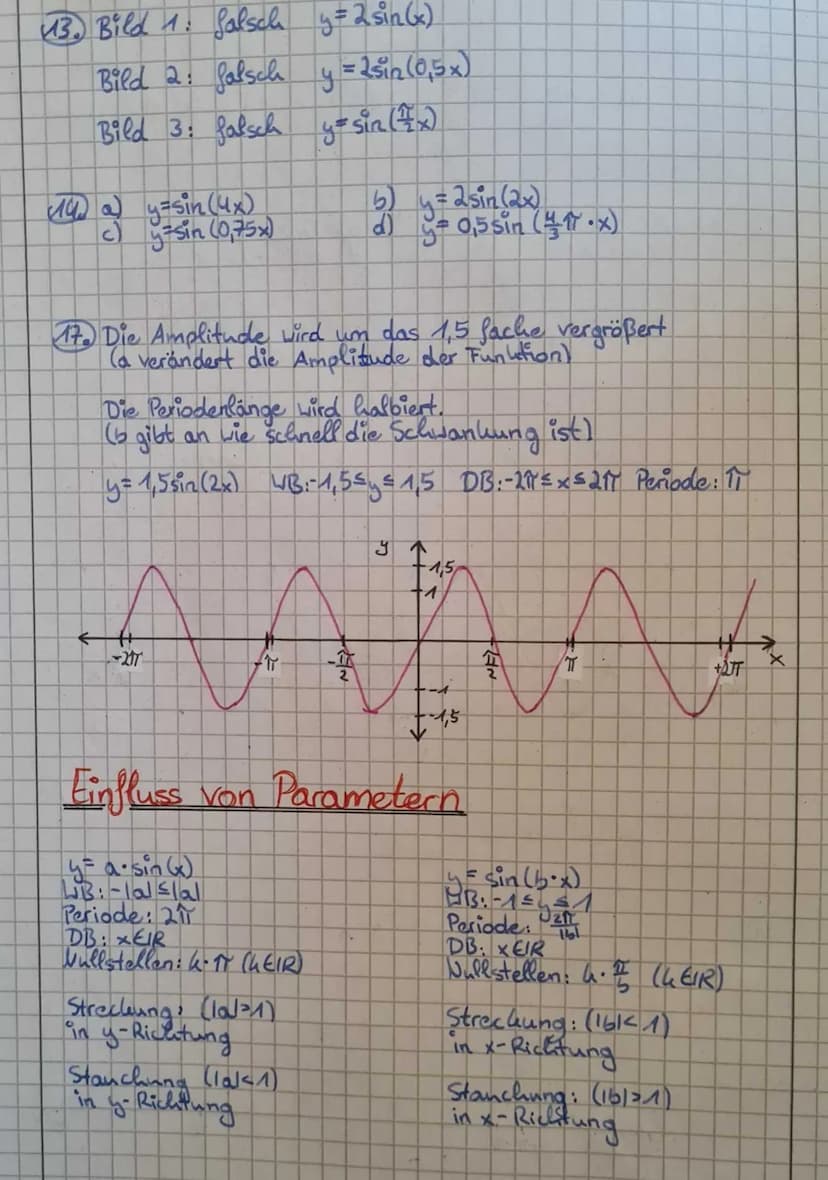 13. Bild 1: falsch y=2sin(x)
Bild 2: falsch y=2sin(0,5x)
Bild 3: falsch y=sin(π/2 x)
14. a) y=sin(4x) b) y=2sin(2x)
c) y=sin(0,75x) d) y=0,5sin(4/3 π·x)
17. Die Amplitude wird um das 1,5 fache vergrößert
(a verändert die Amplitude der Funktion)
Die Periodenlänge wird halbiert.
(b gibt an wie schnell die Schwankung ist)
y=1,5sin(2x) WB:-1,5≤y≤1,5 DB:-2π≤x≤2π Periode: π
y
1,5
1
-2π -π -π/2 π/2 π +2π x
-1
-1,5
Einfluss von Parametern
y=a·sin(x)
WB:-|a|≤|a|
Periode: 2π
DB: x∈IR
Nullstellen: k·π (k∈IR)
Streckung: (|a|>1)
in y-Richtung
Stauchung (|a|<1)
in y-Richtung
y=sin(b·x)
WB:-1≤y≤1
Periode: 2π/|b|
DB: x∈IR
Nullstellen: k·π/b (k∈IR)
Streckung: (|b|<1)
in x-Richtung
Stauchung: (|b|>1)
in x-Richtung